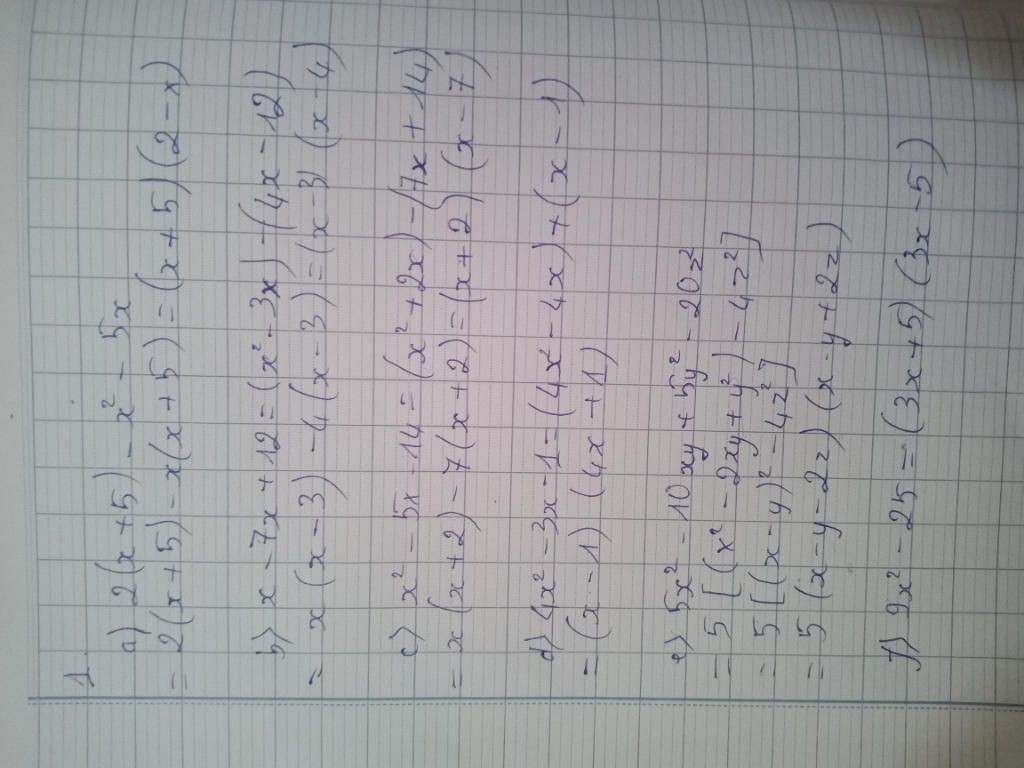 1.
a) 2(x+5) - x² - 5x
= 2(x+5) - x(x+5) = (x+5)(2-x)
b) x - 7x + 12 = (x² - 3x) - (4x - 12)
= x(x-3) - 4(x-3) = (x-3)(x-4)
c) x² - 5x - 14 = (x² + 2x) - (7x + 14)
= x(x+2) - 7(x+2) = (x+2)(x-7)
d) 4x² - 3x - 1 = (4x² - 4x) + (x - 1)
= (x - 1)(4x + 1)
e) 5x² - 10xy + 5y² - 20z²
= 5[(x² - 2xy + y²) - 4z²]
= 5[(x-y)² - 4z²]
= 5(x-y-2z)(x-y+2z)
f) 9x² - 25 = (3x+5)(3x-5)